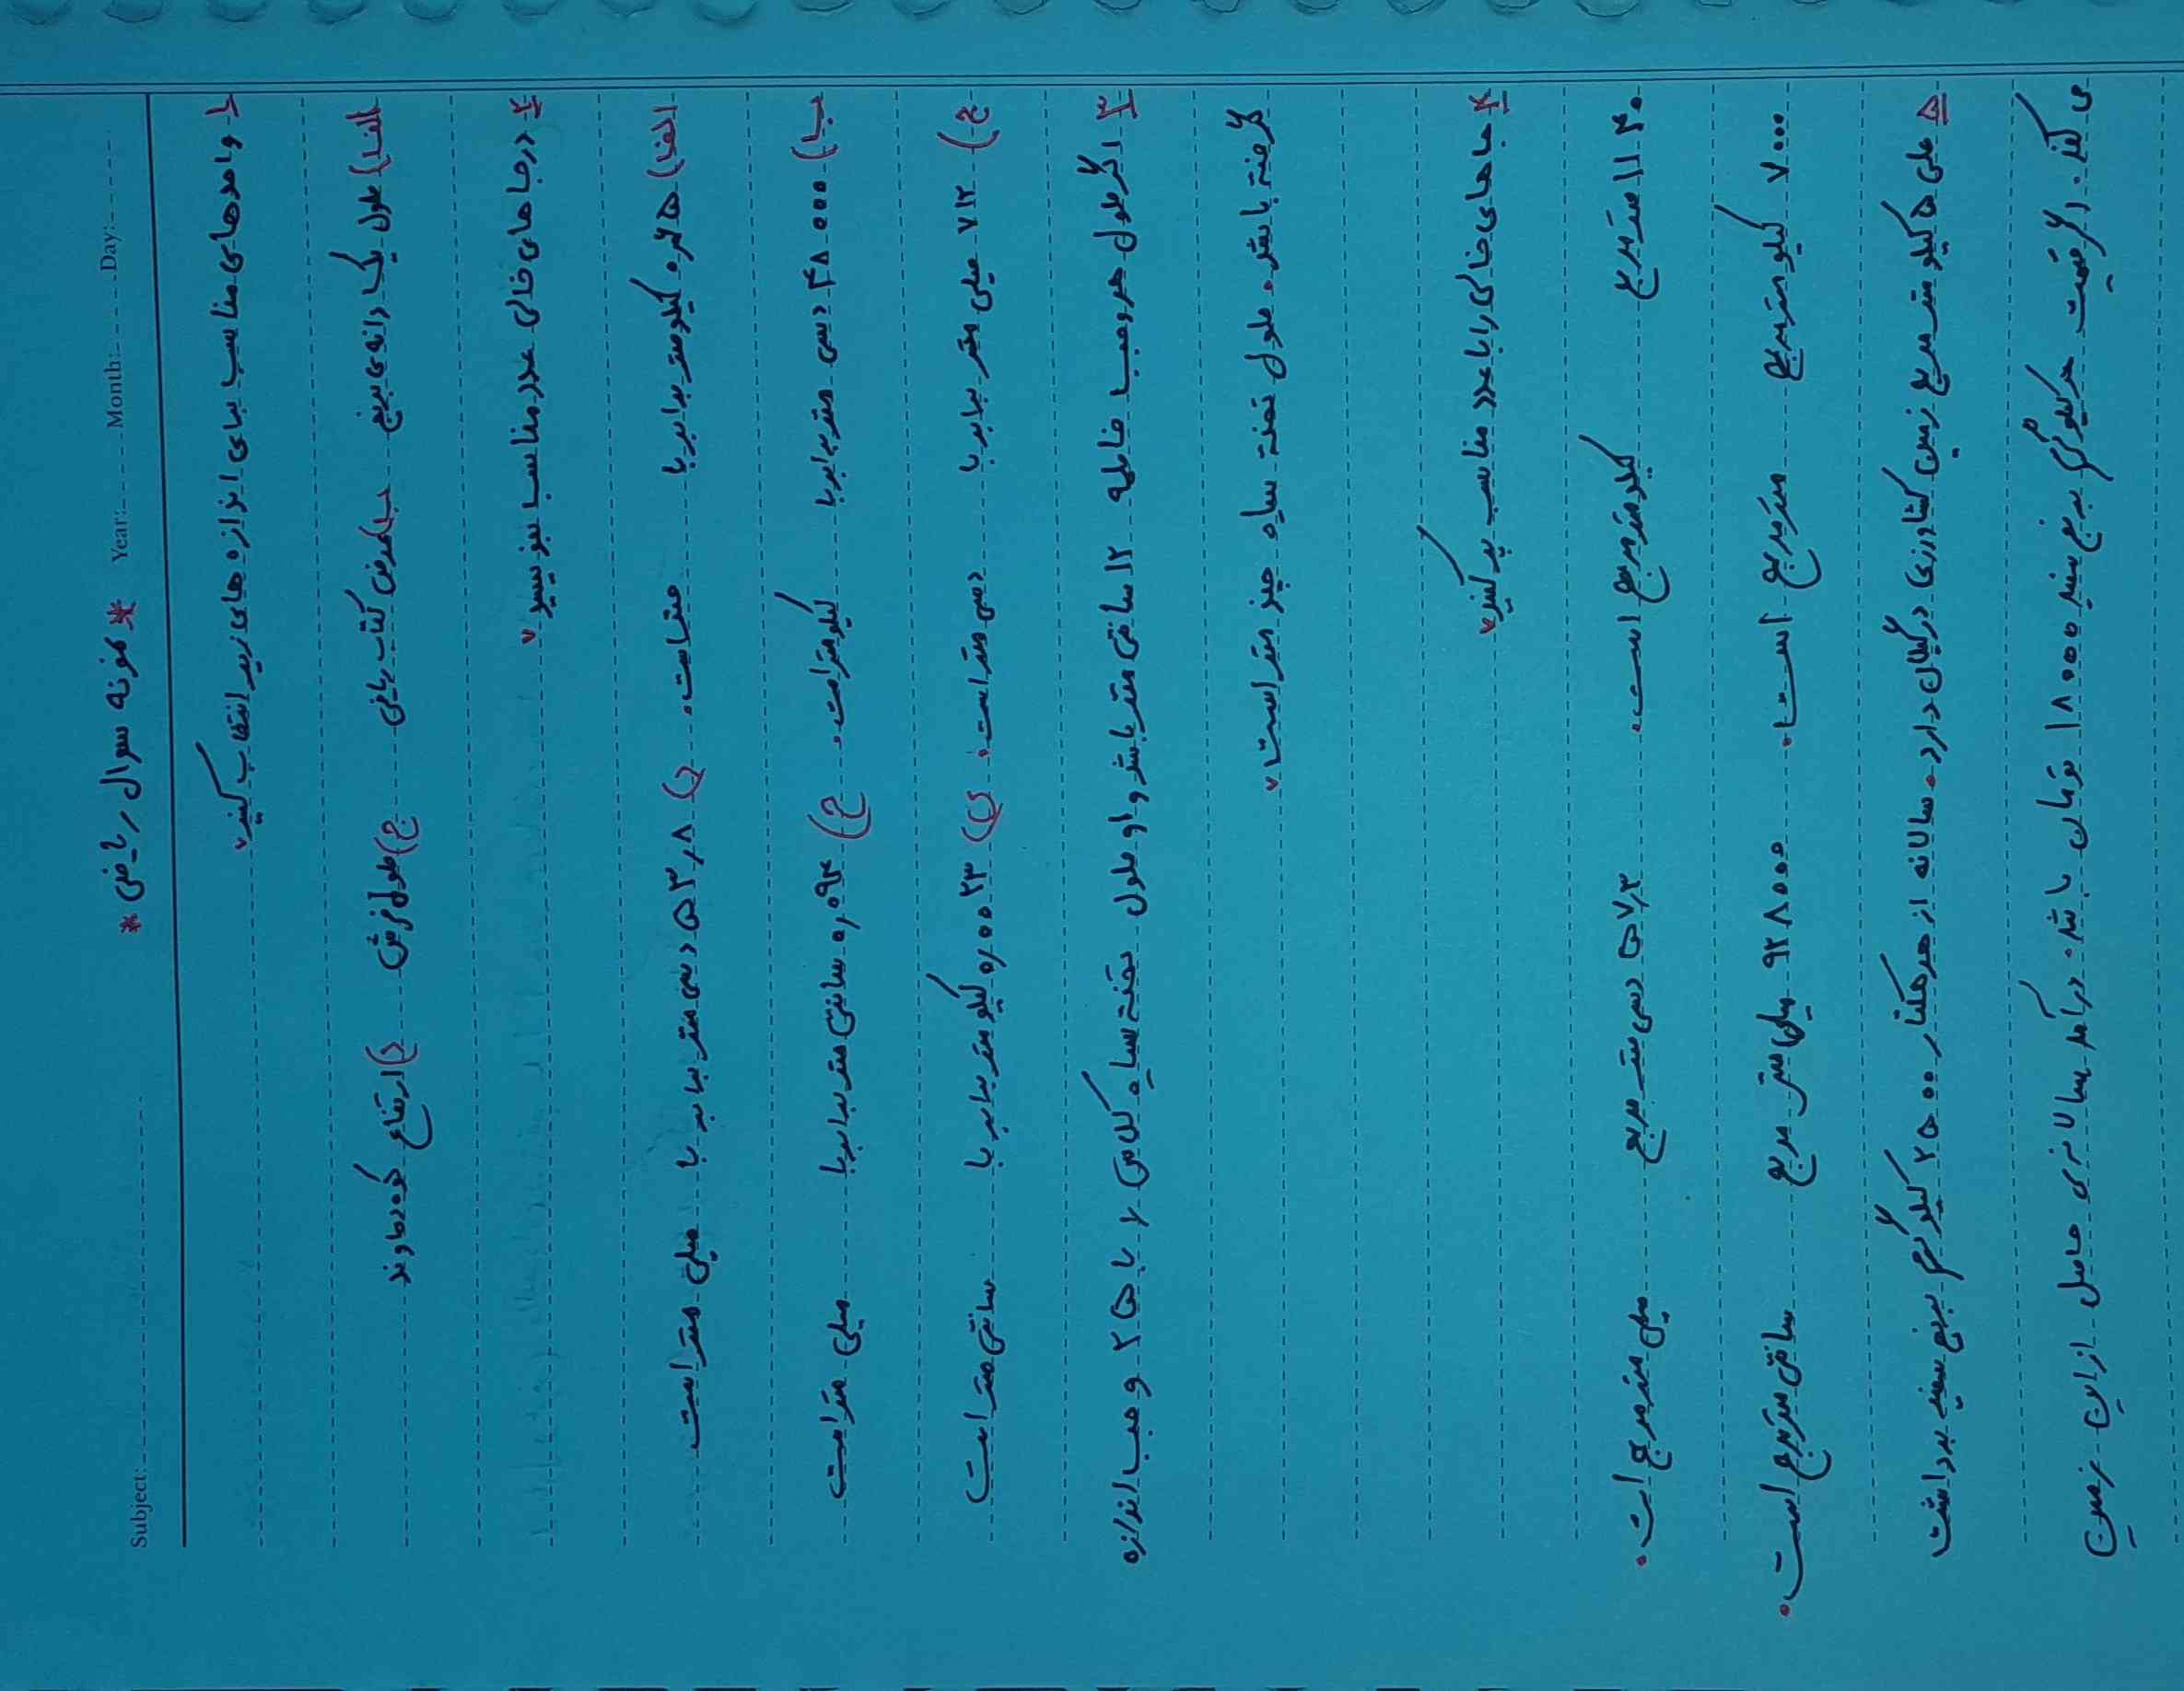 Subject: Year: Month: Day:
* نمونه سوال ریاضی *
۱ واحدهای مناسب برای اندازه های زیر انتخاب کنید.
الف) طول یک دانه ی برنج ب) عرض کتاب ریاضی ج) طول فرش د) ارتفاع کوه دماوند
۲ در جا های خالی عدد مناسب بنویسید.
الف) ۰٫۶۵ کیلومتر برابر با متر است. د) ۵۳٫۸ دسی متر برابر با میلی متر است
ب) ۴۸۰۰۰ دسی متر برابر با کیلومتر است. ح) ۰٫۰۹۴ سانتی متر برابر با میلی متر است
ج) ۷۱۲ میلی متر برابر با دسی متر است. ی) ۰٫۰۰۲۳ کیلومتر برابر با سانتی متر است
۳ اگر طول هر وجب فاطمه ۱۲ سانتی متر باشد و او طول تخته سیاه کلاس را با ۲۵ وجب اندازه
گرفته باشد. طول تخته سیاه چند متر است.
۴ جا های خالی را با عدد مناسب پر کنید.
۱۱۴۰ متر مربع کیلومتر مربع است. ۵۷٫۳ دسی متر مربع میلی متر مربع است.
۷۰۰۰ کیلومتر مربع متر مربع است. ۹۲۸۰۰۰ میلی متر مربع سانتی متر مربع است.
۵ علی ۵ کیلو متر مربع زمین کشاورزی در گیلان دارد. سالانه از هر هکتار ۲۵۰۰ کیلوگرم برنج سفید برداشت
می کند. اگر قیمت هر کیلوگرم برنج سفید ۱۸۰۰۰ تومان باشد. درآمد سالانه ی حاصل از این زمین